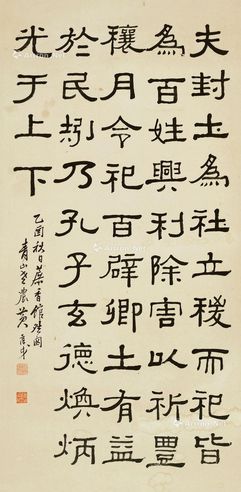 夫封土為社立稷而祀皆
為百姓興利除害以祈豐
穰月令祀百辟卿士有益
於民矧乃孔子玄德煥炳
光于上下
乙酉秋日蕉香館
青山老農黃